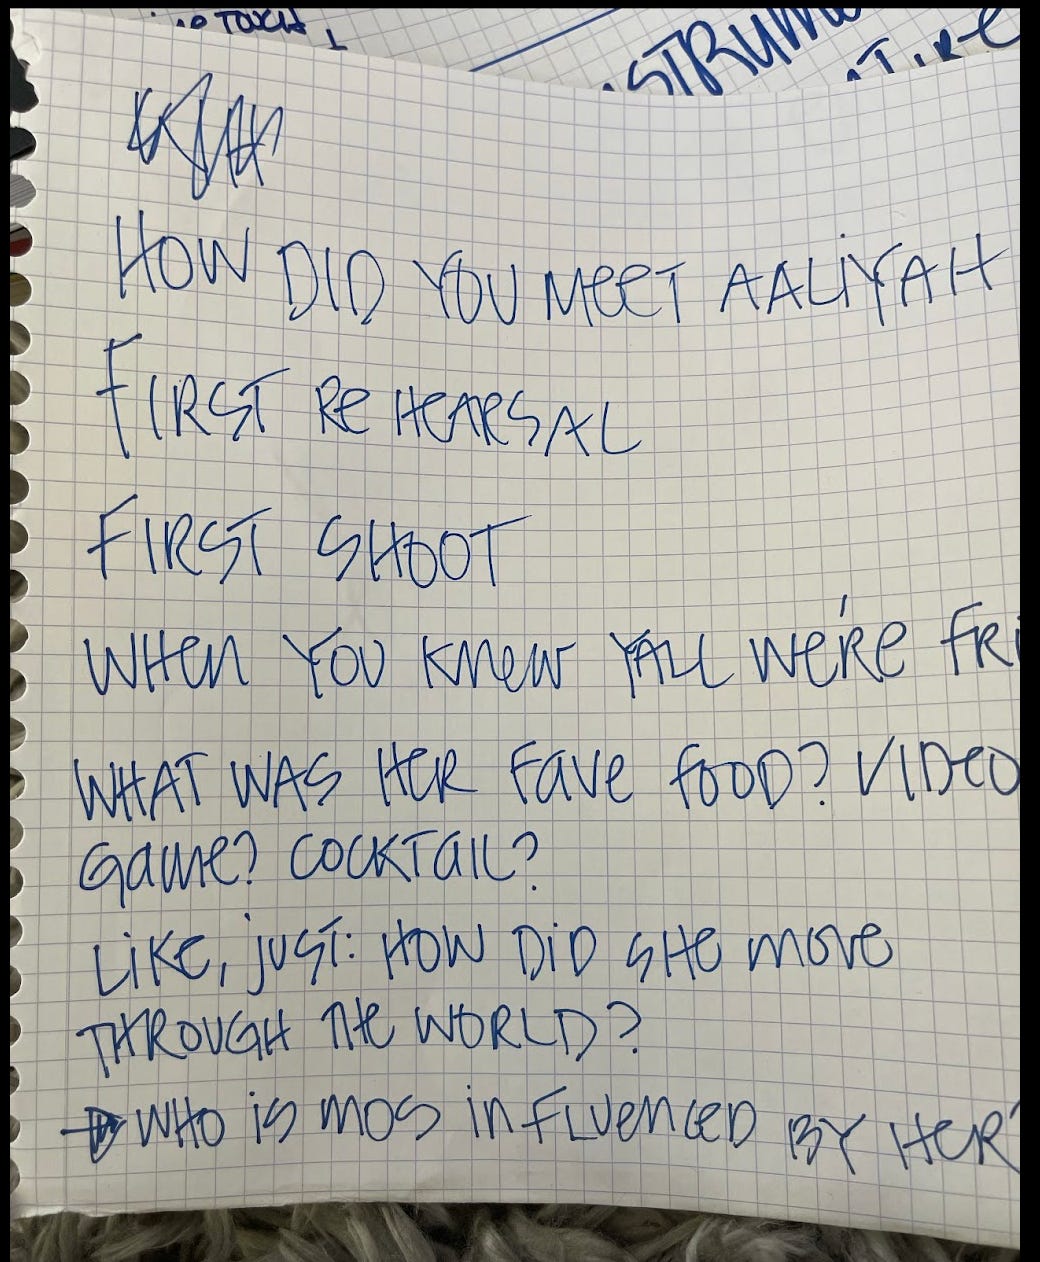 TOXIA
HOW DID YOU MEET AALIYAH
FIRST REHEARSAL
FIRST SHOOT
WHEN YOU KNEW YALL WE'RE FRI
WHAT WAS HER FAVE FOOD? VIDEO
GAME? COCKTAIL?
LIKE, JUST: HOW DID SHE MOVE
THROUGH THE WORLD?
WHO IS MOS INFLUENCED BY HER?